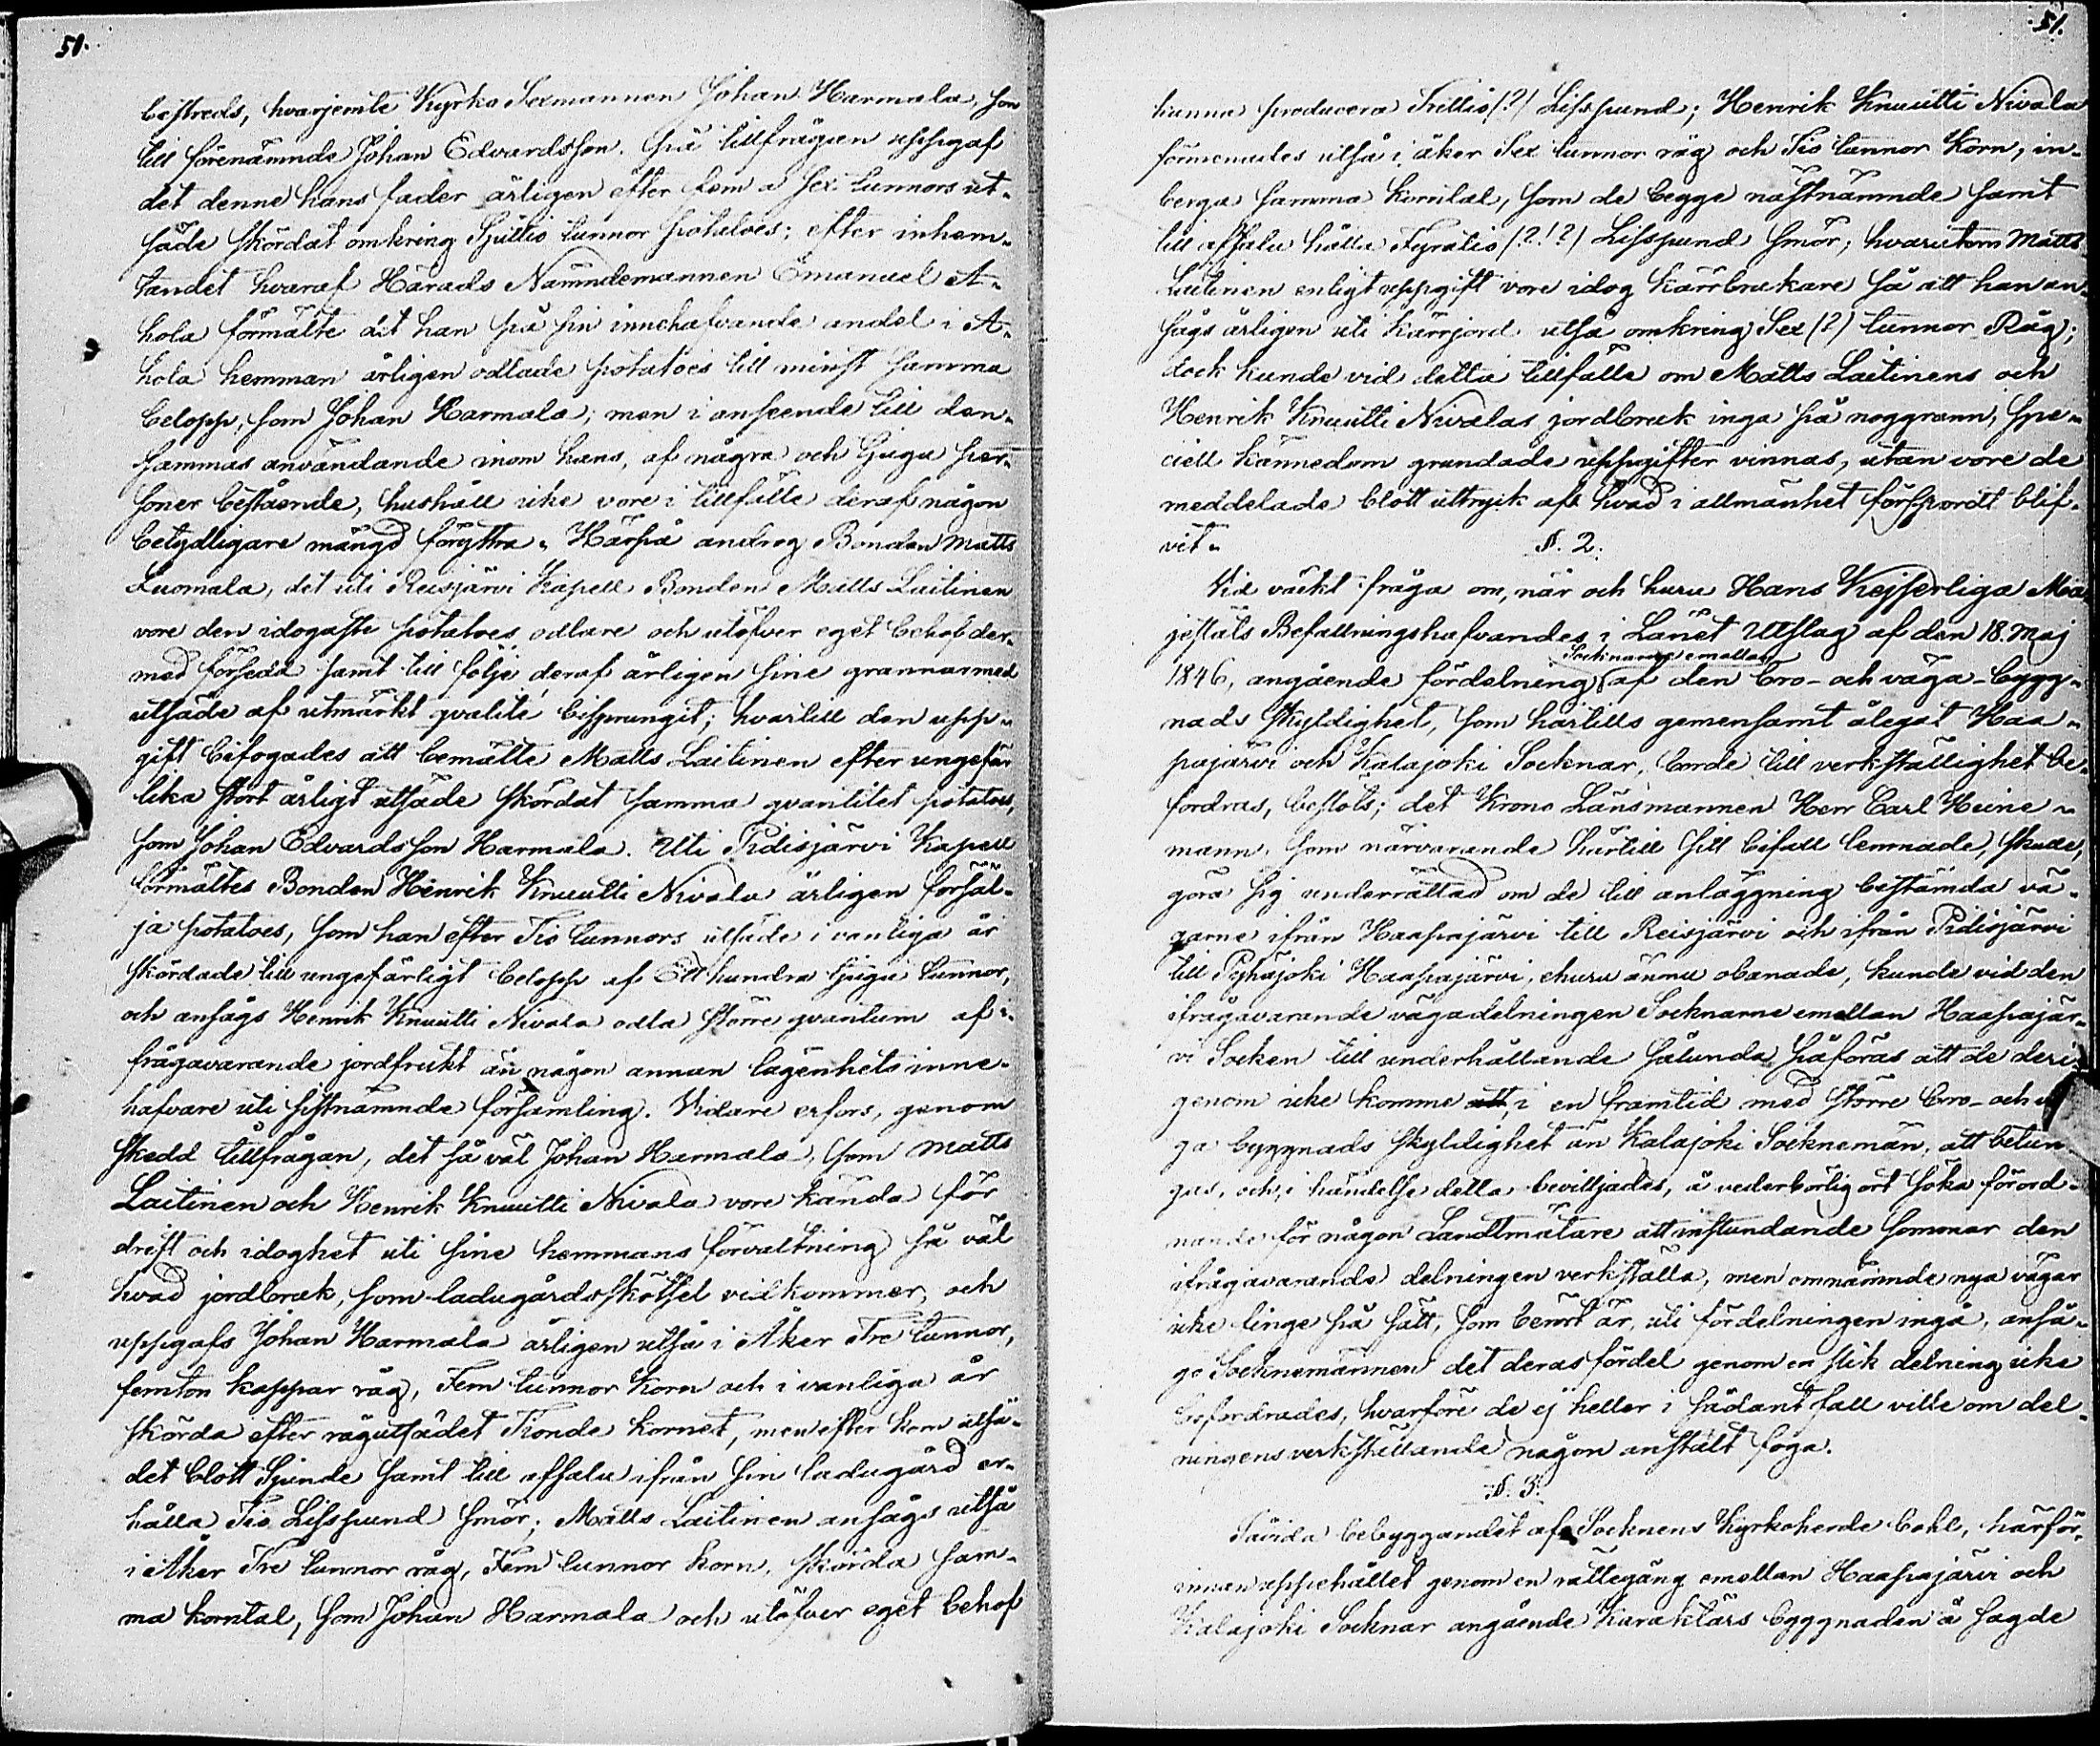 50.
bestreds, hvarjemte Kyrko Sexmannen Johan Harmala, son
till förenämnde Johan Edvardsson. på tillfrågan uppgaf
det denne hans fader årligen efter fem a sex tunnors ut-
säde skördat omkring Sjuttio tunnor potatoes; efter inhem-
tandet hvaraf Härads Nämndemannen Emanuel A-
hola förmälte att han på sin innehafvande andel i A-
hola hemman årligen odlade potatoes till minst samma
belopp, som Johan Harmala; men i anseende till den-
sammas användande inom hans, af några och tjugu per-
soner bestående, hushåll icke vore i tillfälle deraf någon
betydligare mängd föryttra. Härpå androg Bonden Matts
Luomala, det uti Reisjärvi Kapell Bonden Matts Laitinen
vore den idogaste potatoes odlare och utöfver eget behof der-
med försedd samt till följe deraf årligen sine grannar med
utsäde af utmärkt qvalité bisprungit; hvartill den upp-
gift bifogades att bemälte Matts Laitinen efter ungefär
lika stort årligt utsäde skördat samma qvantitet potatoes,
som Johan Edvardsson Harmala. Uti Pidisjärvi Kapell
förmältes Bonden Henrik Knuutti Nivala årligen försäl-
ja potatoes, som han efter Tio tunnors utsäde i vanliga år
skördade till ungefärligt belopp af Ett hundra tjugu tunnor,
och ansågs Henrik Knuutti Nivala odla större qvantum af i-
frågavarande jordfrukt än någon annan lägenhets inne-
hafvare uti sistnämnde församling. Vidare erfors, genom
skedd tillfrågan, det så väl Johan Harmala, som Matts
Laitinen och Henrik Knuutti Nivala vore kända för
drift och idoghet uti sine hemmans förvaltning så väl
hvad jordbruk, som ladugårdsskötsel vidkommer, och
uppgafs Johan Harmala årligen utså i Åker Tre tunnor,
femton kappar råg, Fem tunnor Korn och i vanliga år
skörda efter rågutsädet Tionde kornet, men efter korn utsä-
det blott Sjunde samt till afsalu ifrån sin ladugård er-
hålla Tio Lisspund smör; Matts Laitinen ansågs utså
i Åker Tre tunnor råg, Fem tunnor korn, skörda sam-
ma korntal, som Johan Harmala och utöfver eget behof
51.
kunna producera Trettio (?) Lisspund; Henrik Knuutti Nivala
förmenades utså i åker Sex tunnor råg och Tio tunnor Korn, in-
berga samma korntal, som de begge nästnämnde samt
till afsalu hålla Fyratio (?!?) Lisspund smör; hvarutom Matts
Laitinen enligt uppgift vore idog kärrbrukare så att han an-
sågs årligen uti kärrjord utså omkring Sex (?) tunnor Råg;
dock kunde vid detta tillfälle om Matts Laitinens och
Henrik Knuutti Nivalas jordbruk inga på noggrann, spe-
ciell kännedom grundade uppgifter vinnas, utan vore de
meddelade blott uttryck af hvad i allmänhet förspordt blif-
vit.
§. 2.
Vid väckt fråga om, när och huru Hans Kejserliga Ma-
jestäts Befallningshafvandes i Länet Utslag af den 18. Maj
Socknarne emellan
1846, angående fördelning af den bro- och väga-bygg-
nads skyldighet, som härtills gemensamt ålegat Haa-
pajärvi och Kalajoki Socknar, borde till verkställighet be-
fordras, beslöts; det Krono Länsmannen Herr Carl Heine-
mann, som närvarande härtill sitt bifall lemnade, skulle,
göra sig underrättad om de till anläggning bestämda vä-
garne ifrån Haapajärvi till Reisjärvi och ifrån Pidisjärvi
till Pyhäjoki Haapajärvi, ehuru ännu obanade, kunde vid den
ifrågavarande vägadelningen Socknarne emellan Haapajär-
vi Socken till underhållande sålunda påföras att de deri-
genom icke komme att i en framtid med större bro- och vä-
ga byggnads skyldighet än Kalajoki Sockneman, att betun-
gas, och, i händelse detta bevilljades, å vederbörlig ort söka förord-
nande för någon Landtmätare att instundande sommar den
ifrågavarande delningen verkställa, men omnämnde nya vägar
icke finge på sätt, som berört är, uti fördelningen ingå, anså-
go Socknemännen det deras fördel genom en slik delning icke
befordrades, hvarföre de ej heller i sådant fall ville om del-
ningens verkställande någon anstalt foga.
§. 3.
Såvida bebyggandet af Socknens Kyrkoherde bohl, härför-
innan uppehållet genom en rättegång emellan Haapajärvi och
Kalajoki Socknar angående Karaktärs byggnaden å sagde